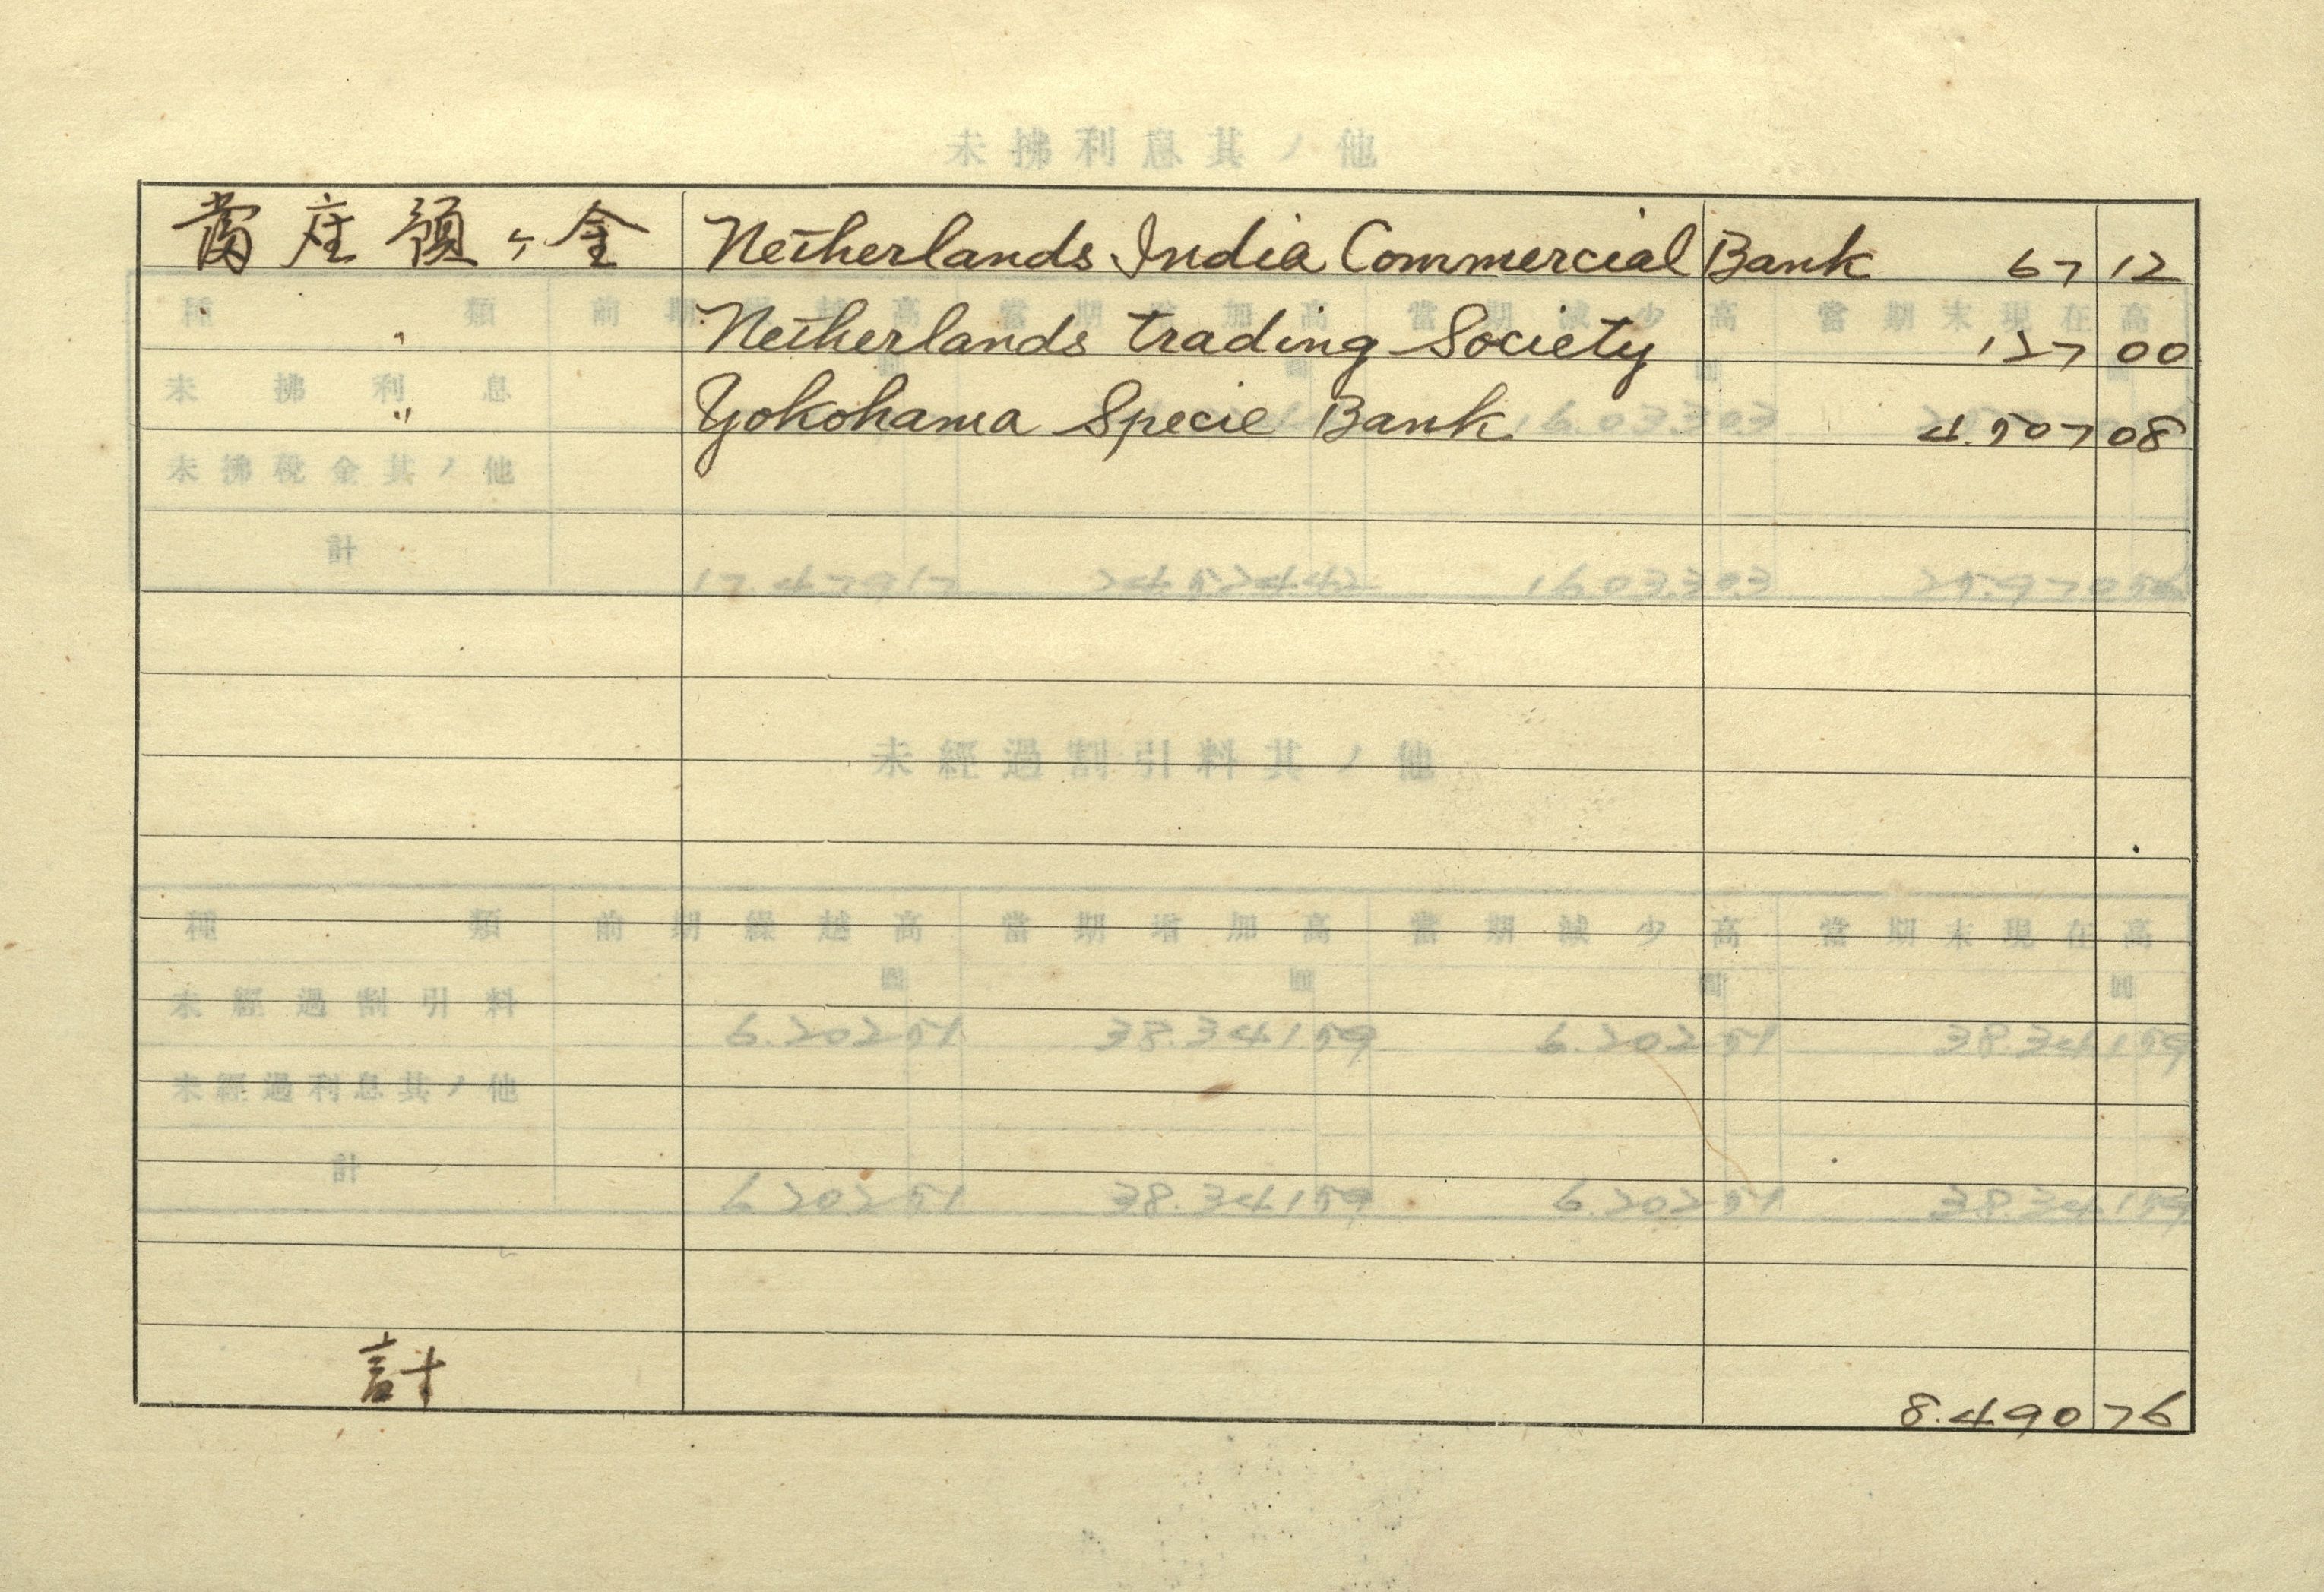 未拂利息其ノ他
當座預ヶ金 Netherlands India Commercial Bank 67 12
種類 前期繰越高 當期增加高 當期減少高 當期末現在高
〃 Netherlands trading Society 127 00
未拂利息 16.033 03
〃 Yokohama Specie Bank 4.507 08
未拂稅金其ノ他
計 17.479 17 24.524 42 16.033 03 25.970 56
未經過割引料其ノ他
種類 前期繰越高 當期增加高 當期減少高 當期末現在高
圓 圓 圓 圓
未經過割引料 6.202 51 38.341 59 6.202 51 38.341 59
未經過利息其ノ他
計 6.202 51 38.341 59 6.202 51 38.341 59
計 8.490 76